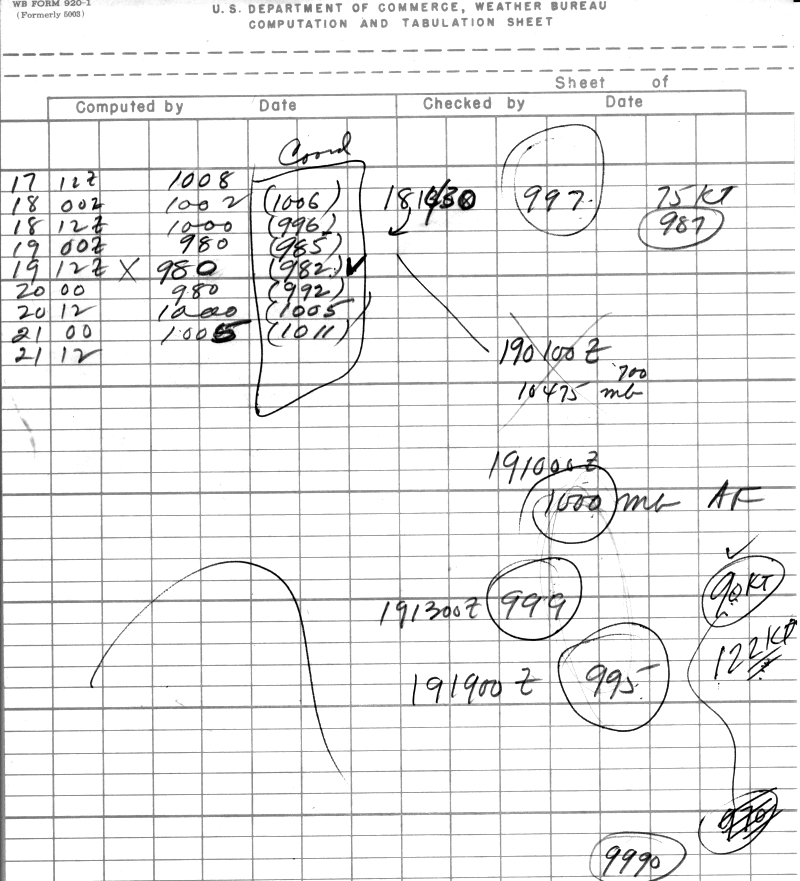 WB FORM 920-1
(Formerly 5003)
U.S. DEPARTMENT OF COMMERCE, WEATHER BUREAU
COMPUTATION AND TABULATION SHEET
Sheet of
Computed by Date Checked by Date
Coord
17 12Z 1008
18 00Z 1002 (1006) 997. 75 KT
18 12Z 1000 (996) 987
19 00Z 980 (985)
19 12Z X 980 (982) ✓
20 00 980 (992)
20 12 1000 (1005)
21 00 1005 (1011)
21 12
190100Z
700
10475 mb
191000Z
1000 mb AF
✓
90KT
191300Z 999
122KT
191900Z 995
9990